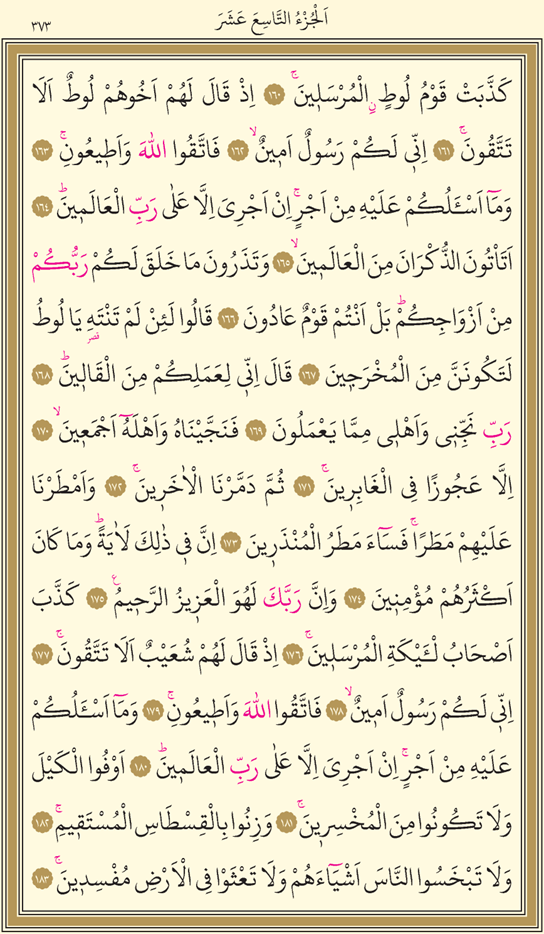 اَلْجُزْءُ التَّاسِعَ عَشَرَ
٣٧٣
كَذَّبَتْ قَوْمُ لُوطٍ ۨالْمُرْسَل۪ينَۚ ﴿١٦٠﴾ اِذْ قَالَ لَهُمْ اَخُوهُمْ لُوطٌ اَلَا
تَتَّقُونَۚ ﴿١٦١﴾ اِنّ۪ي لَكُمْ رَسُولٌ اَم۪ينٌۙ ﴿١٦٢﴾ فَاتَّقُوا اللّٰهَ وَاَط۪يعُونِۚ ﴿١٦٣﴾
وَمَٓا اَسْـَٔلُكُمْ عَلَيْهِ مِنْ اَجْرٍۚ اِنْ اَجْرِيَ اِلَّا عَلٰى رَبِّ الْعَالَم۪ينَۜ ﴿١٦٤﴾
اَتَأْتُونَ الذُّكْرَانَ مِنَ الْعَالَم۪ينَۙ ﴿١٦٥﴾ وَتَذَرُونَ مَا خَلَقَ لَكُمْ رَبُّكُمْ
مِنْ اَزْوَاجِكُمْۜ بَلْ اَنْتُمْ قَوْمٌ عَادُونَ ﴿١٦٦﴾ قَالُوا لَئِنْ لَمْ تَنْتَهِ يَا لُوطُ
قصر
لَتَكُونَنَّ مِنَ الْمُخْرَج۪ينَ ﴿١٦٧﴾ قَالَ اِنّ۪ي لِعَمَلِكُمْ مِنَ الْقَال۪ينَۜ ﴿١٦٨﴾
رَبِّ نَجِّن۪ي وَاَهْل۪ي مِمَّا يَعْمَلُونَ ﴿١٦٩﴾ فَنَجَّيْنَاهُ وَاَهْلَهُٓ اَجْمَع۪ينَۙ ﴿١٧٠﴾
اِلَّا عَجُوزًا فِي الْغَابِر۪ينَۚ ﴿١٧١﴾ ثُمَّ دَمَّرْنَا الْاٰخَر۪ينَۚ ﴿١٧٢﴾ وَاَمْطَرْنَا
عَلَيْهِمْ مَطَرًاۚ فَسَٓاءَ مَطَرُ الْمُنْذَر۪ينَ ﴿١٧٣﴾ اِنَّ ف۪ي ذٰلِكَ لَاٰيَةًۜ وَمَا كَانَ
اَكْثَرُهُمْ مُؤْمِن۪ينَ ﴿١٧٤﴾ وَاِنَّ رَبَّكَ لَهُوَ الْعَز۪يزُ الرَّح۪يمُ۟ ﴿١٧٥﴾ كَذَّبَ
اَصْحَابُ لْـَٔيْكَةِ الْمُرْسَل۪ينَۚ ﴿١٧٦﴾ اِذْ قَالَ لَهُمْ شُعَيْبٌ اَلَا تَتَّقُونَۚ ﴿١٧٧﴾
اِنّ۪ي لَكُمْ رَسُولٌ اَم۪ينٌۙ ﴿١٧٨﴾ فَاتَّقُوا اللّٰهَ وَاَط۪يعُونِۚ ﴿١٧٩﴾ وَمَٓا اَسْـَٔلُكُمْ
عَلَيْهِ مِنْ اَجْرٍۚ اِنْ اَجْرِيَ اِلَّا عَلٰى رَبِّ الْعَالَم۪ينَۜ ﴿١٨٠﴾ اَوْفُوا الْكَيْلَ
وَلَا تَكُونُوا مِنَ الْمُخْسِر۪ينَۚ ﴿١٨١﴾ وَزِنُوا بِالْقِسْطَاسِ الْمُسْتَق۪يمِۚ ﴿١٨٢﴾
وَلَا تَبْخَسُوا النَّاسَ اَشْيَٓاءَهُمْ وَلَا تَعْثَوْا فِي الْاَرْضِ مُفْسِد۪ينَۚ ﴿١٨٣﴾